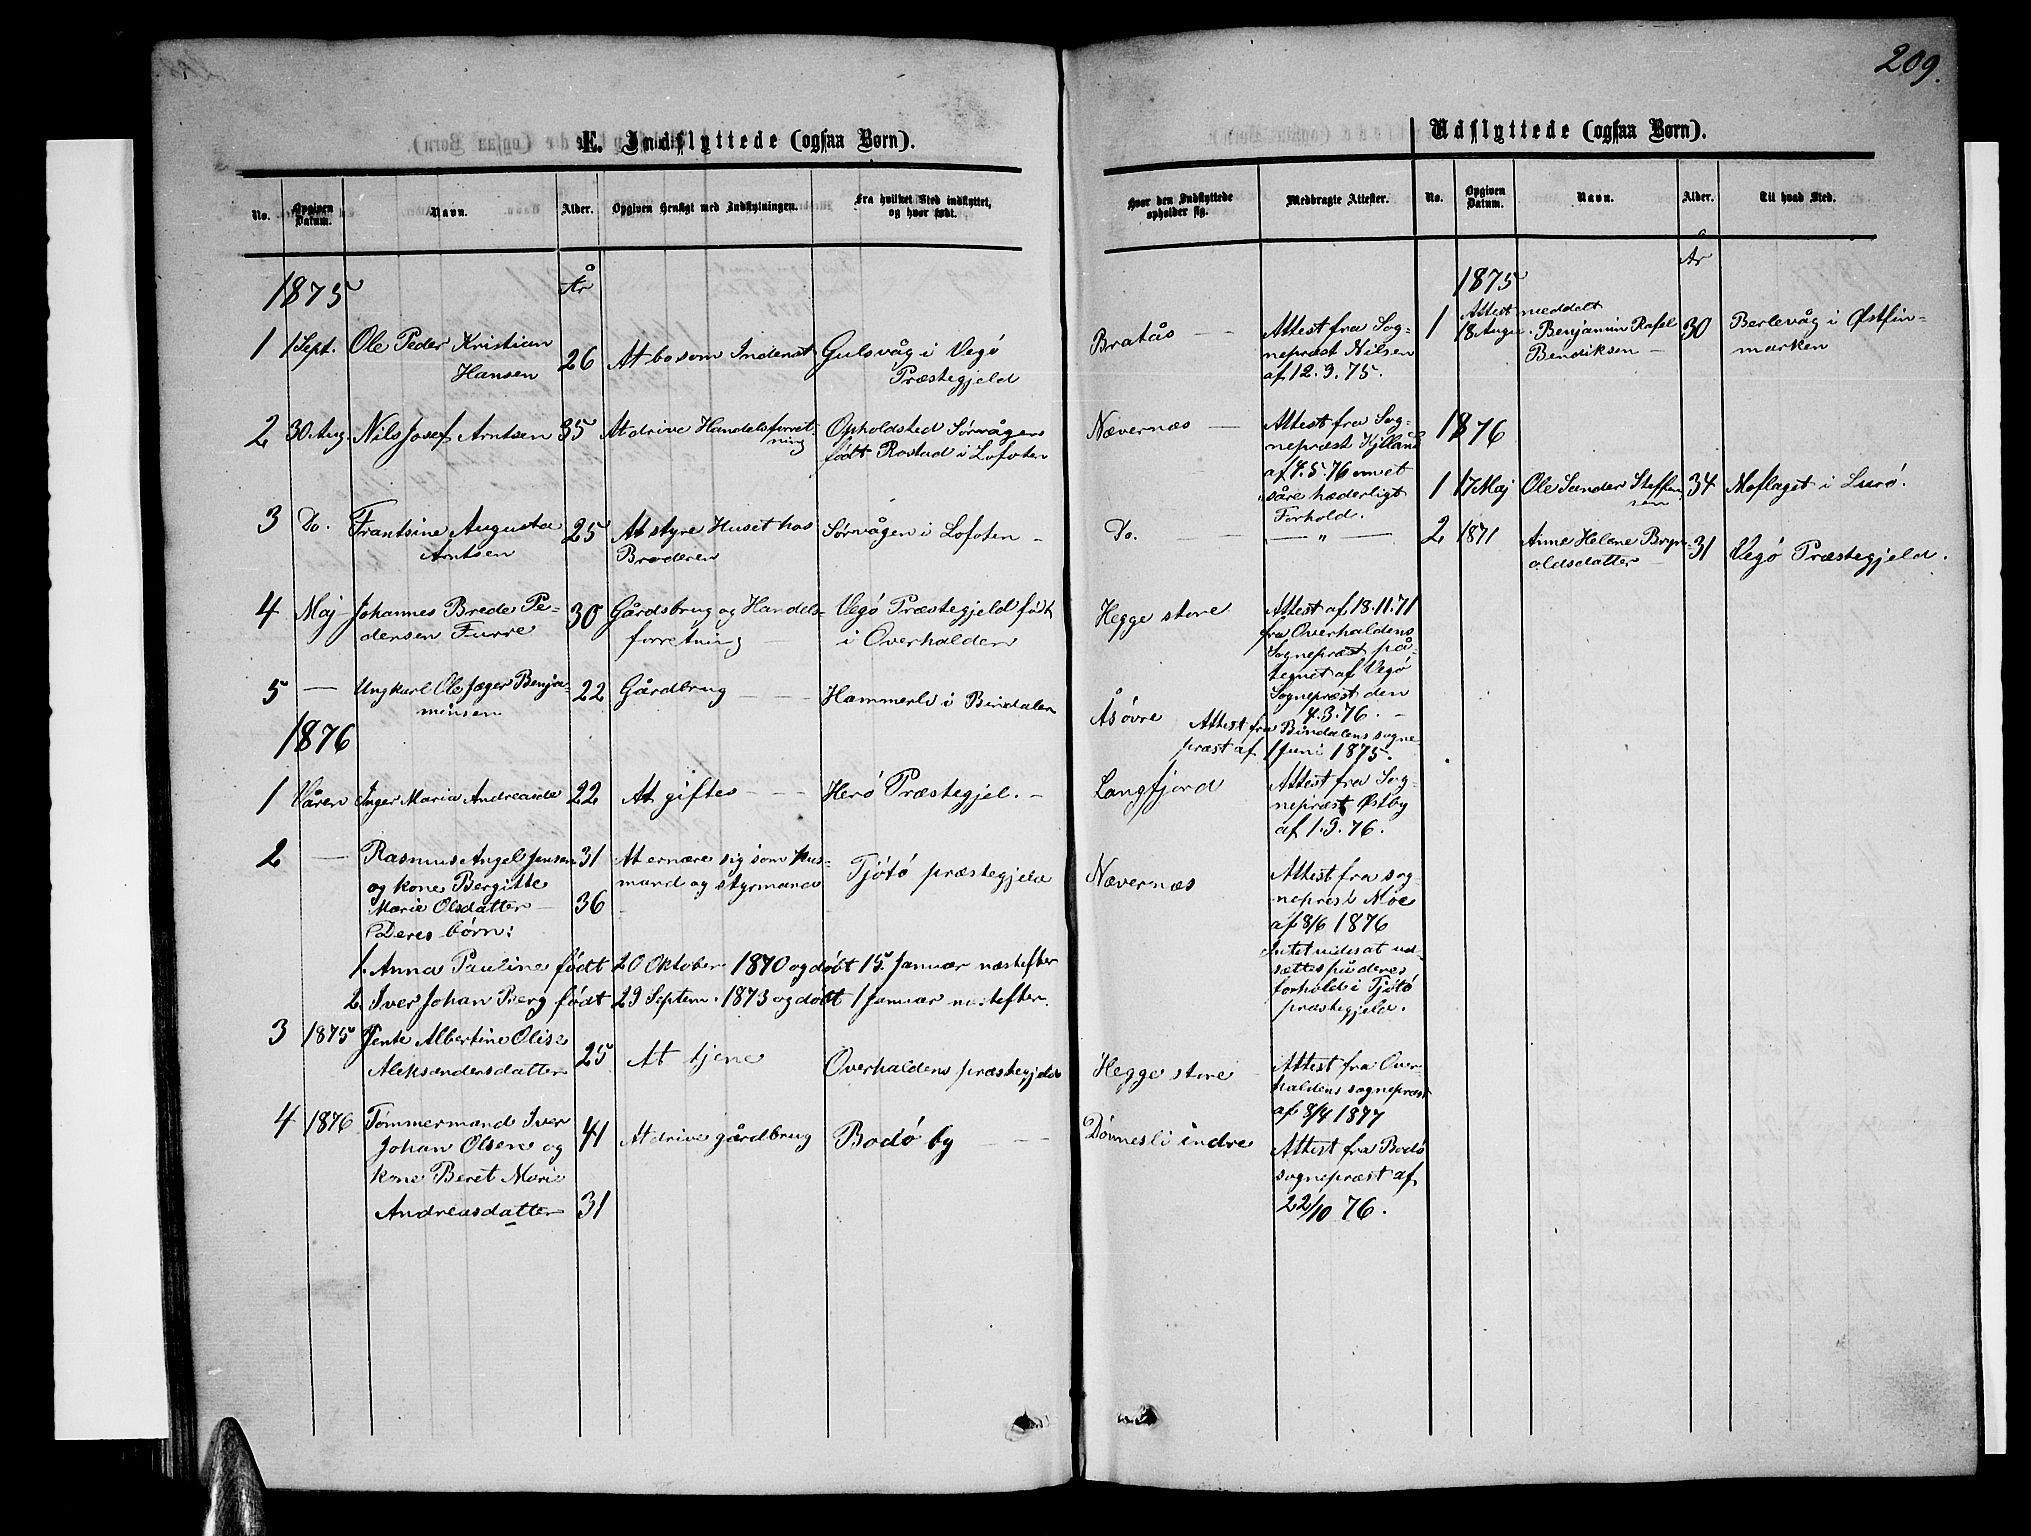 209.
E. Indflyttede (ogsaa Børn).
No.
Opgiven Datum.
Navn.
Alder.
Opgiven Hensigt med Indflytningen.
Fra hvilket Sted indflyttet, og hvor født.
Hvor den Indflyttede opholder sig.
Medbragte Attester.
1875
År
1 1 Sept. Ole Peder Kristian 26 At bo som Inderst Gulsvåg i Vegø Bratås Attest fra Sog-
Hansen Præstegjeld nepræst Nilsen
af 12.9.75.
2 30 Aug. Nils Josef Arntsen 35 At drive Handelsforret- Opholdsted Sørvågen Nævernæs Attest fra Sog-
ning født Rostad i Lofoten nepræst Kjelland
af 4.5.76 om et
såre hæderligt
Forhold.
3 Do. Frantsine Augusta 25 At styre Huset hos Sørvågen i Lofoten Do. — " —
Arntsen Broderen
4 Maj Johannes Brede Pe- 30 Gårdsbrug og Handels- Vegø Præstegjeld født Hegge store Attest af 13.11.71
dersen Furre forretning i Overhalden fra Overhaldens
Sognepræst på-
tegnet af Vegø
Sognepræst den
4.3.76.
5 — Ungkarl Ole Jæger Benja- 22 Gårdbrug Hammerli i Bindalen Åsøvre Attest fra Bindalens sogne-
minsen præst af 1 Juni 1875.
1876
1 Våren Inger Maria Andreasda 22 At giftes Herø Præstegjel. Langfjord Attest fra Sog-
nepræst Østby
af 1.3.76.
2 — Rasmus Angel Jensen 31 At ernære sig som hus- Tjøtø præstegjeld Nævernæs Attest fra sog-
og kone Bergitte mand og styrmand nepræst Moe
Marie Olsdatter 36 af 8/6 1876
Deres børn: Intet videsat ud-
1. Anna Pauline født 20 Oktober 1870 og døbt 15 Januar næstefter sættes på deres
2. Iver Johan Berg født 29 Septem. 1873 og døbt 1 Januar næstefter. forhold i Tjøtø
præstegjeld.
3 1875 Jente Albertine Olise 25 At tjene Overhaldens præstegjeld Hegge store Attest fra Over-
Aleksandersdatter haldens sognepræst
af 8/4 1877
4 1876 Tømmermand Iver 41 At drive gårdbrug Bodø by Dønnesli indre Attest fra Bodø
Johan Olsen og sognepræst af
kone Beret Marie 22/10 76.
Andreasdatter 31
Udflyttede (ogsaa Børn).
No.
Opgiven Datum.
Navn.
Alder.
Til hvad Sted.
År
1875
Attest meddelt
1 18 Aug. Benjamin Rafel 30 Berlevåg i Østfin-
Bendiksen marken
1876
1 17 Maj Ole Sander Steffen- 34 Moflaget i Lurø.
sen
2 1871 Anne Helene Bryn- 31 Vegø Præstegjeld.
oldsdatter